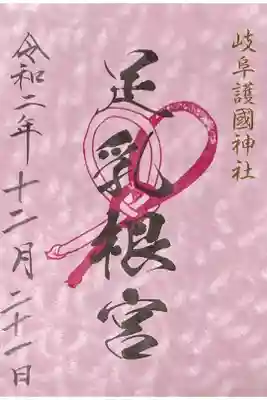 岐阜護國神社
足乳根宮
令和二年十二月二十一日